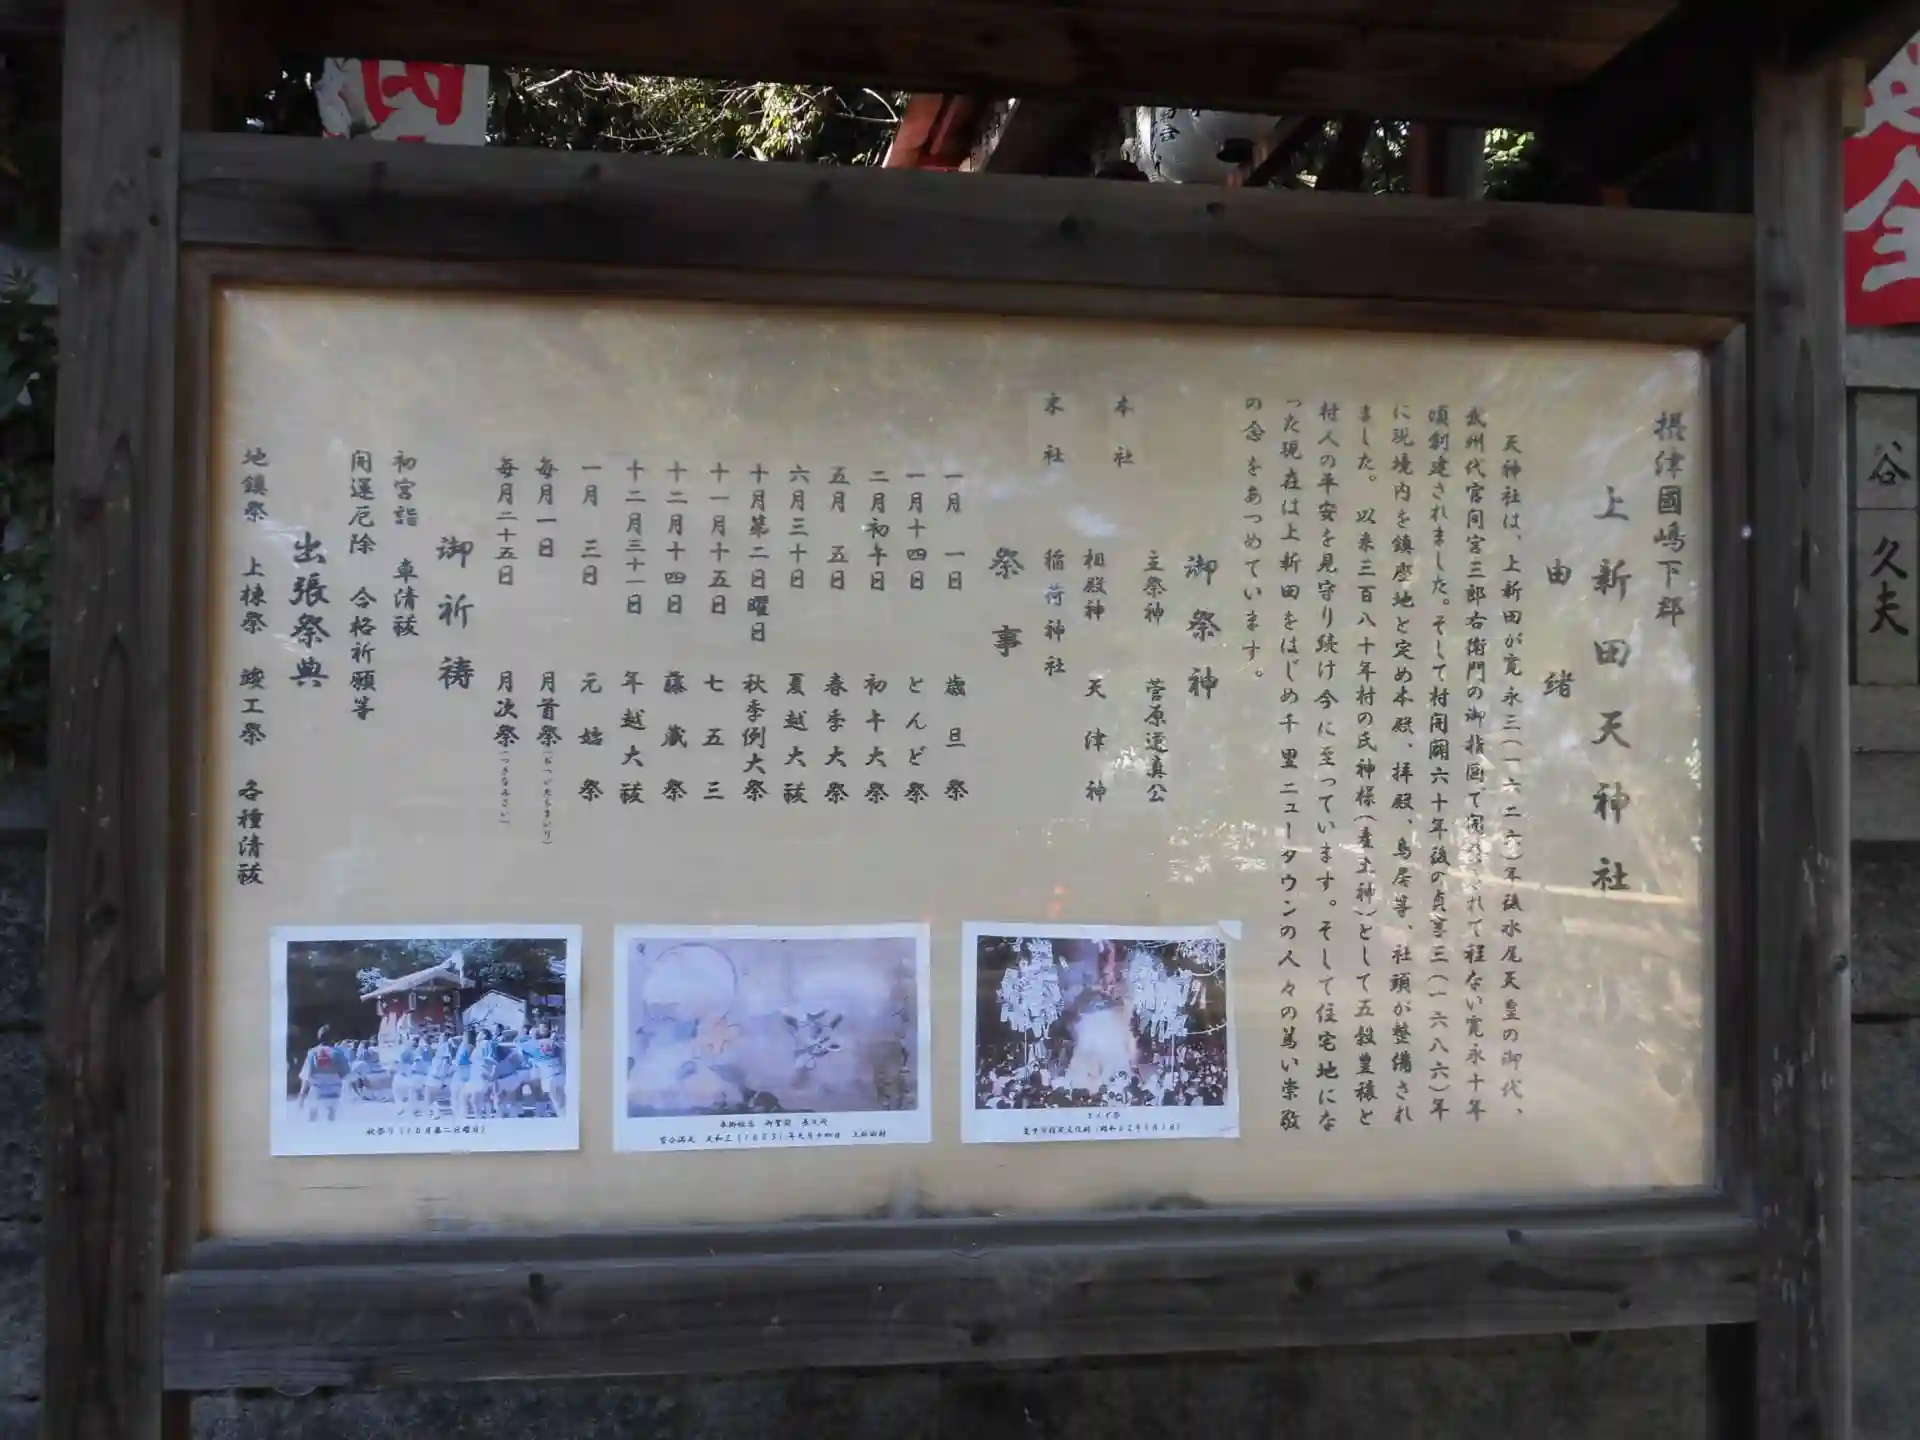 摂津國嶋下郡
上新田天神社
由緒
天神社は、上新田が寛永三(一六二六)年後水尾天皇の御代、
武州代官間宮三郎右衛門の御指図で開発されて程ない寛永十年
頃創建されました。そして村開闢六十年後の貞享三(一六八六)年
に現境内を鎮座地と定め本殿、拝殿、鳥居等、社頭が整備され
ました。以来三百八十年村の氏神様(産土神)として五穀豊穣と
村人の平安を見守り続け今に至っています。そして住宅地にな
った現在は上新田をはじめ千里ニュータウンの人々の篤い崇敬
の念をあつめています。
御祭神
本社 主祭神 菅原道真公
相殿神 天津神
末社 稲荷神社
祭事
一月一日 歳旦祭
一月十四日 とんど祭
二月初午日 初午大祭
五月五日 春季大祭
六月三十日 夏越大祓
十月第二日曜日 秋季例大祭
十一月十五日 七五三
十二月十四日 藤蔵祭
十二月三十一日 年越大祓
一月三日 元始祭
毎月一日 月首祭(おついたちまいり)
毎月二十五日 月次祭(つきなみさい)
御祈祷
初宮詣 車清祓
開運厄除 合格祈願等
出張祭典
地鎮祭 上棟祭 竣工祭 各種清祓
秋祭り(10月第二日曜日)
天和三(1683)年九月十四日 上新田村
とんど祭
谷 久夫
全